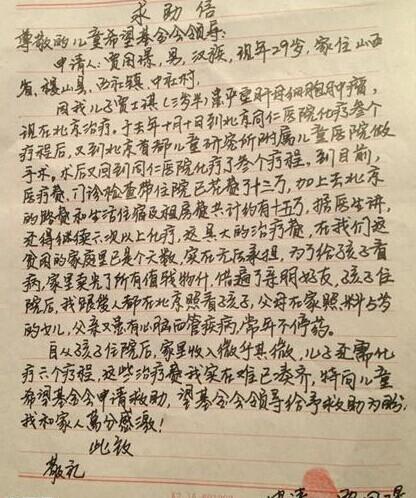 求助信
尊敬的儿童希望基金会领导:
申请人:贾国瑞,男,汉族,现年29岁,家住山西
省,稷山县,西社镇,中社村,
因我儿子贾士琪(三岁半)患严重肝母细胞肿瘤,
现在北京治疗。于去年十月十日到北京同仁医院化疗叁个
疗程后,又到北京首都儿童研究所附属儿童医院做
手术。术后又回到同仁医院化疗了叁个疗程。到目前,
医疗费、门诊检查带住院已花费了十三万,加上去北京
的路费和生活住宿及租房费共计约有十五万,据医生讲,
还得继续六次以上化疗,这具大的治疗费,在我们这
贫困的家庭里已是个天数,实在无后承担,为了给孩子看
病,家里卖完了所有值钱物什,借遍了亲朋好友,孩子住
院后,我跟爱人都在北京照看孩子,父母在家照料5岁
的女儿,父亲又患有心脑血管疾病,常年不停药。
自从孩子住院后,家里收入微乎其微,儿子还需化
疗六个疗程,这些治疗费我实在难已凑齐,特向儿童
希望基金会申请救助,望基金会领导给予救助为盼,
我和家人万分感激!
此致
敬礼